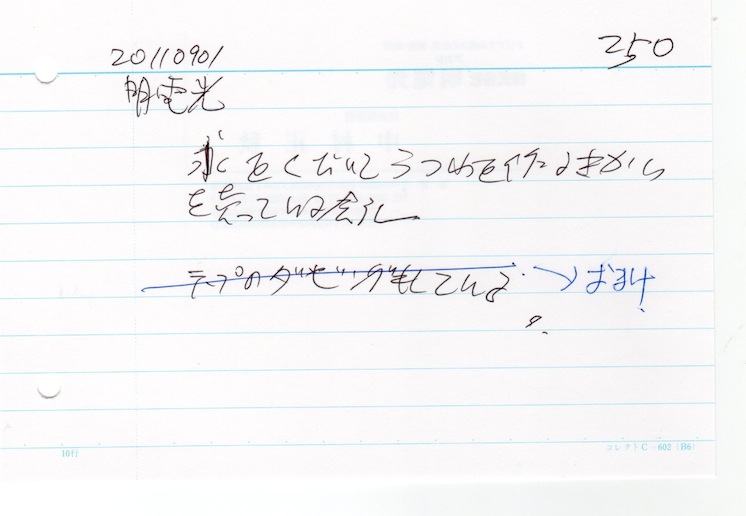 20110901 250
明電光
氷をくだいてうつわを作るきかい
を売っている会社
テープのダビングもしている → おまけ
?
10行 コレクトC-602(B6)